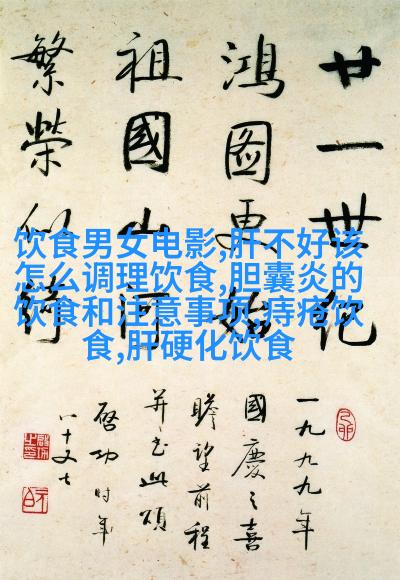 廿一世纪
鸿图更始
祖國山河
繁榮似綺
饮食男女电影,肝不好该
怎么调理饮食,胆囊炎的
饮食和注意事项,痔疮饮
食,肝硬化饮食
一九九九年
國慶之喜
瞻望前程
并书此頌
启功时年
八十又七